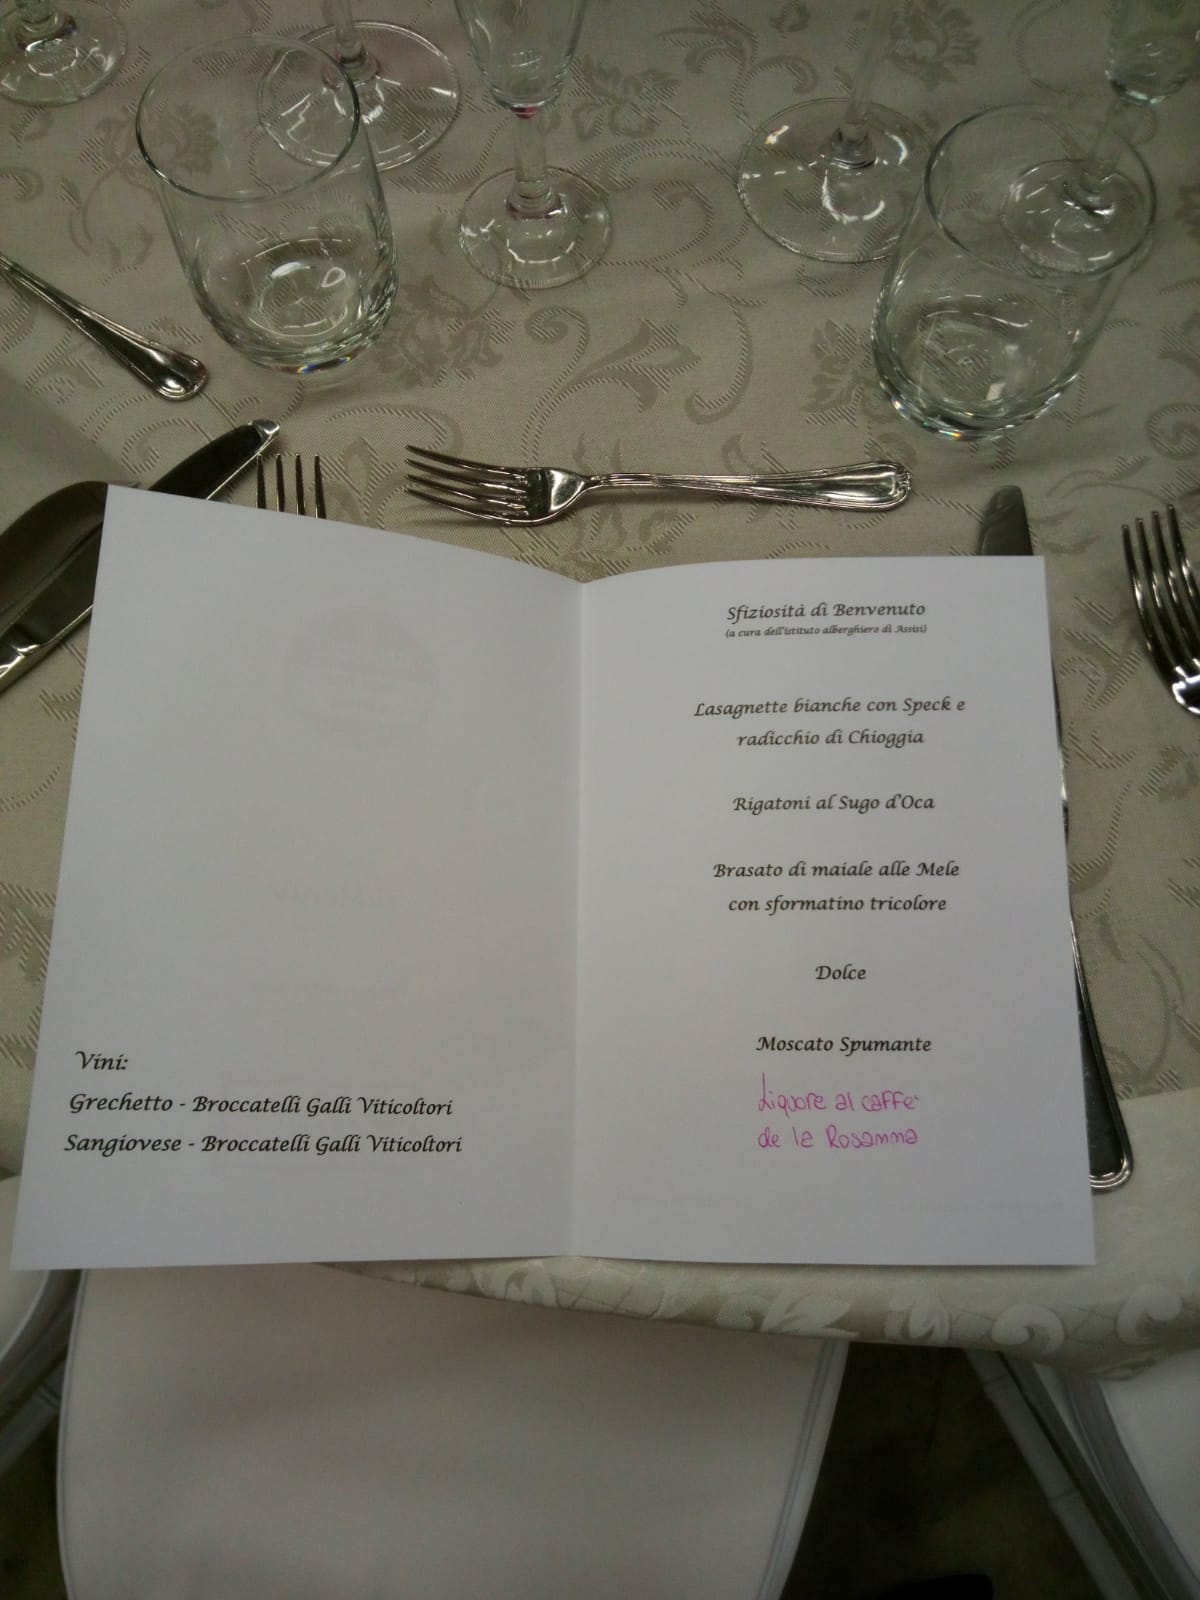 Vini:
Grechetto - Broccatelli Galli Viticoltori
Sangiovese - Broccatelli Galli Viticoltori
Sfiziosità di Benvenuto
(a cura dell'istituto alberghiero di Assisi)
Lasagnette bianche con Speck e
radicchio di Chioggia
Rigatoni al Sugo d'Oca
Brasato di maiale alle Mele
con sformatino tricolore
Dolce
Moscato Spumante
Liquore al caffe'
de la Rosanna